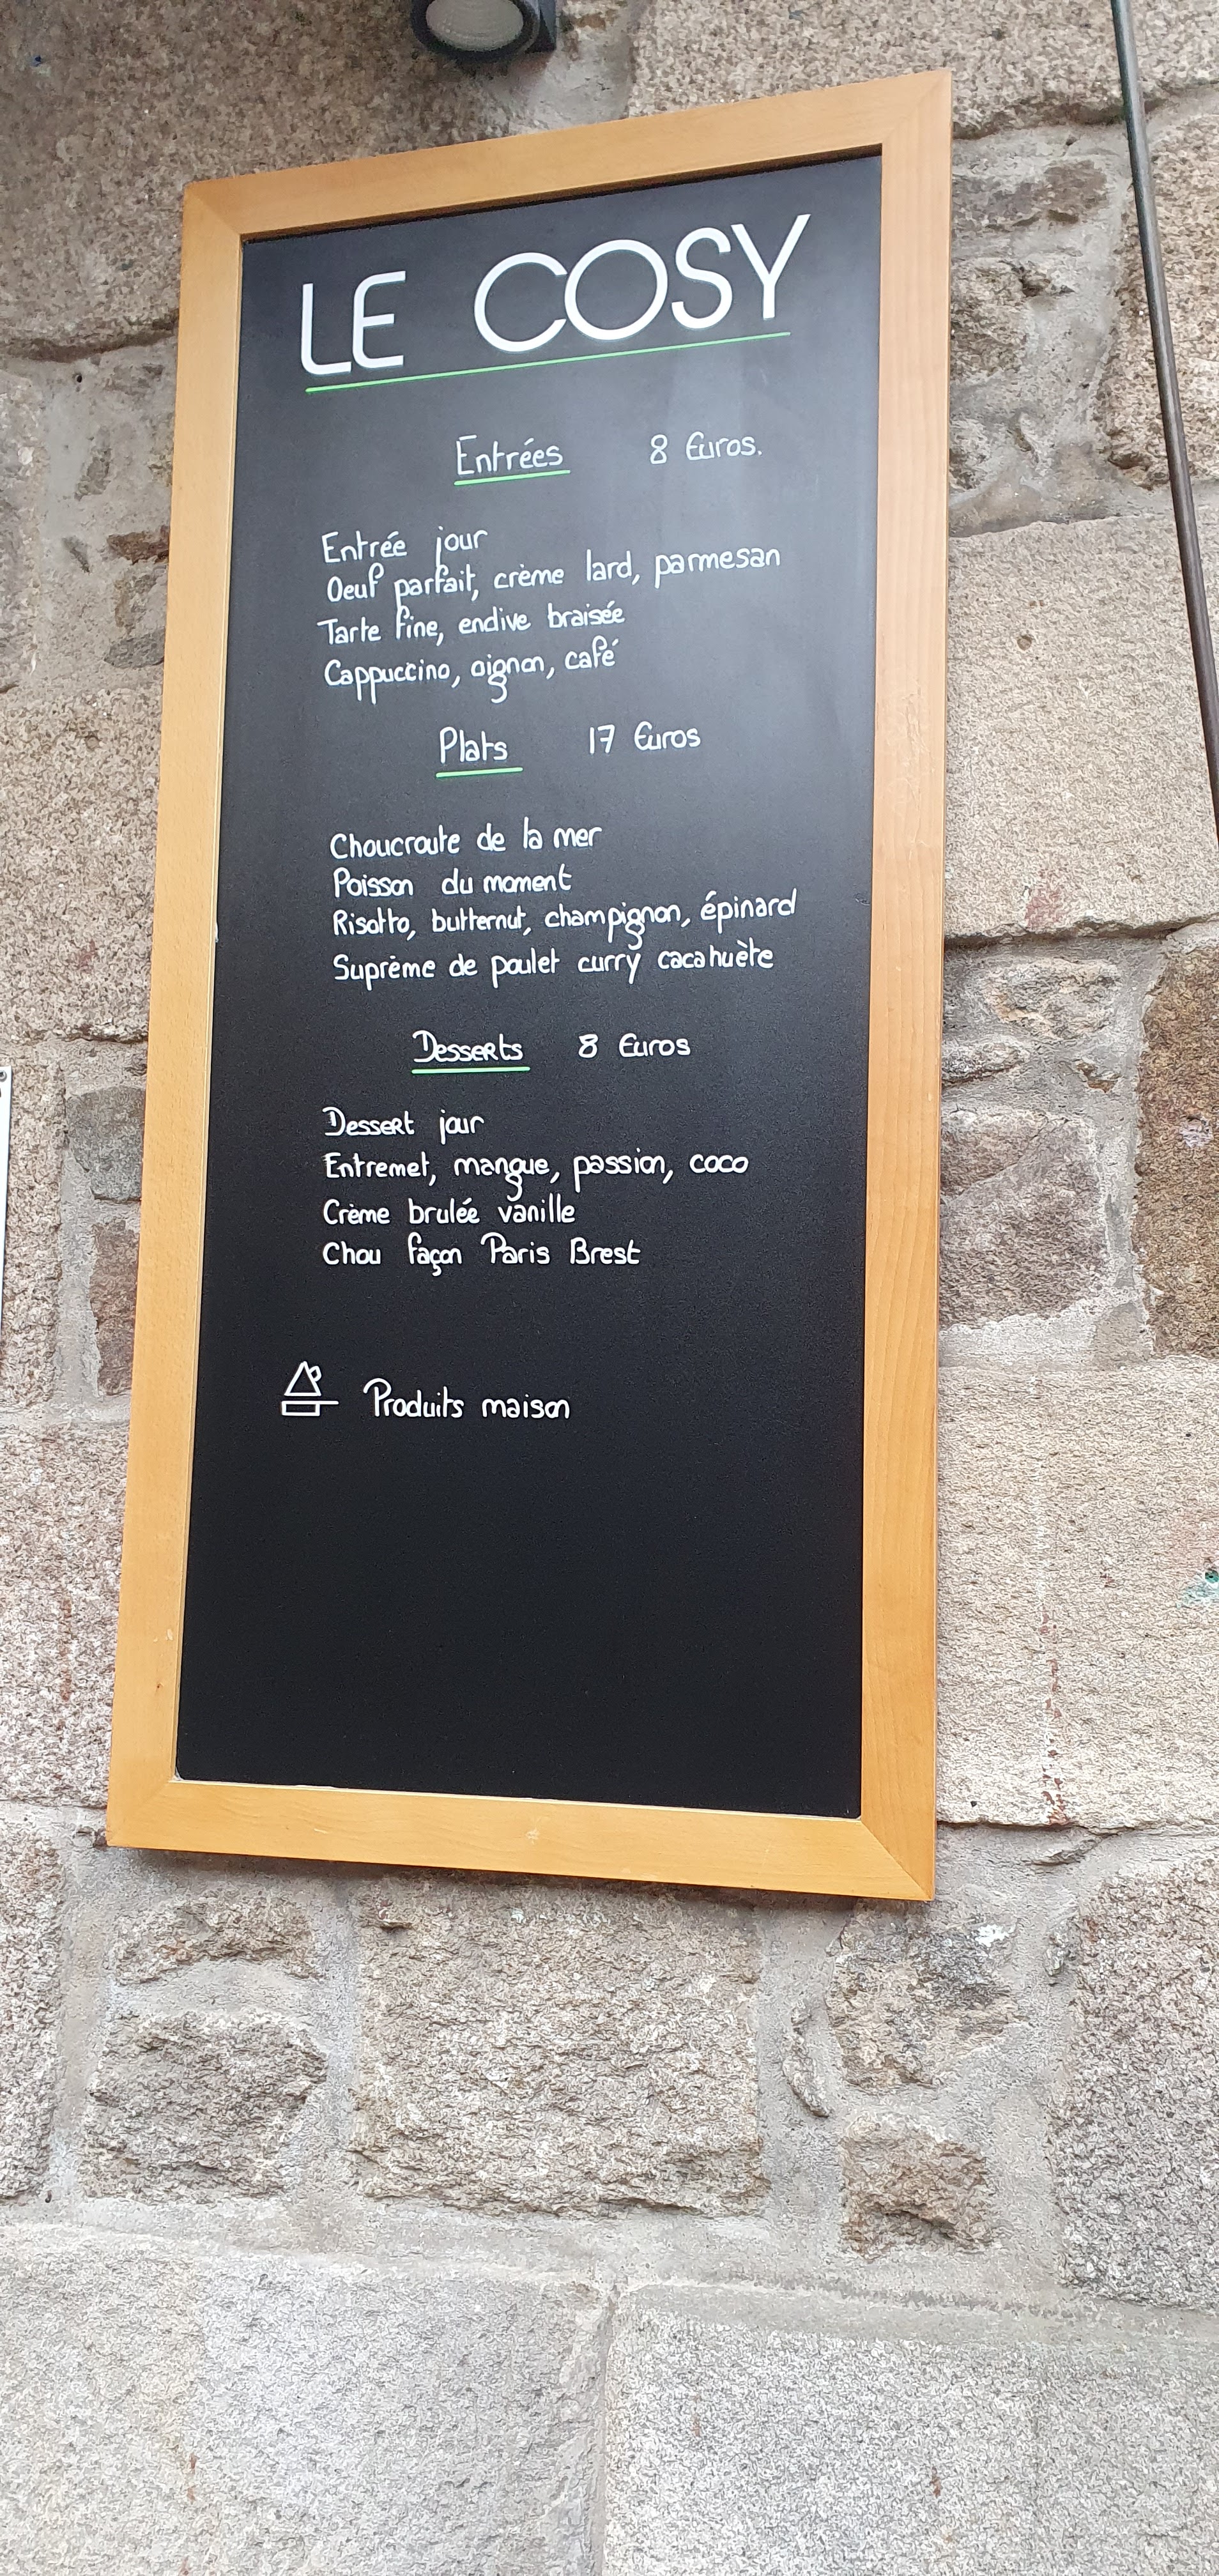 LE COSY
Entrées 8 Euros.
Entrée jour
Oeuf parfait, crème lard, parmesan
Tarte fine, endive braisée
Cappuccino, oignon, café
Plats 17 Euros
Choucroute de la mer
Poisson du moment
Risotto, butternut, champignon, épinard
Suprème de poulet curry cacahuète
Desserts 8 Euros
Dessert jour
Entremet, mangue, passion, coco
Crème brulée vanille
Chou façon Paris Brest
Produits maison